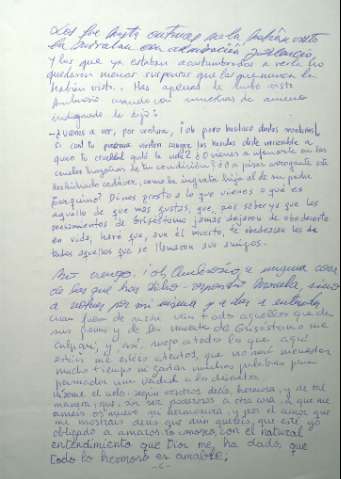 Los que hasta entonces no la habían visto
la miraban con admiración y silencio,
y los que ya estaban acostumbrados a verla no
quedaron menos suspensos que los que nunca la
habían visto. Mas apenas la hubo visto
Ambrosio cuando con muestras de ánimo
indignado le dijo:
-¿Vienes a ver, por ventura, ¡oh fiero basilisco destas montañas!,
si con tu presencia vierten sangre las heridas deste miserable a
quien tu crueldad quitó la vida? ¿O vienes a ufanarte en las
crueles hazañas de tu condición? ¿O a pisar arrogante este
desdichado cadáver, como la ingrata hija el de su padre
Tarquino? Dinos presto a lo que vienes o qué es
aquello de que más gustas, que, por saber yo que los
pensamientos de Grisóstomo jamás dejaron de obedecerte
en vida, haré que, aun él muerto, te obedezcan los de
todos aquellos que se llamaron sus amigos.
-No vengo, ¡oh Ambrosio!, a ninguna cosa
de las que has dicho -respondió Marcela, sino
a volver por mí misma y a dar a entender
cuan fuera de razón van todos aquellos que de
sus penas y de la muerte de Grisóstomo me
culpan, y así, ruego a todos los que aquí
estáis me estéis atentos, que no será menester
mucho tiempo ni gastar muchas palabras para
persuadir una verdad a los discretos
Hízome el cielo, según vosotros decís, hermosa, y de tal
manera, que, sin ser poderosos a otra cosa, a que me
améis os mueve mi hermosura, y por el amor que
me mostráis decís que aun queréis, que esté yo
obligada a amaros. Yo conozco, con el natural
entendimiento que Dios me ha dado, que
todo lo hermoso es amable;